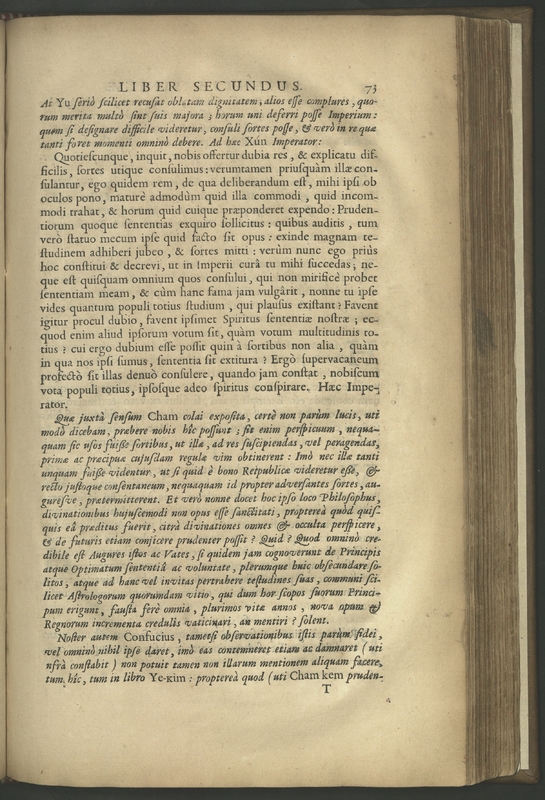 LIBER SECUNDUS. 73
At Yu seriò scilicet recusat oblatam dignitatem, alios esse complures, quo-
rum merita multò sint suis majora; horum uni deferri posse Imperium:
quem si designare difficile videretur, consuli sortes posse, & verò in re quæ
tanti foret momenti omninò debere. Ad hæc Xún Imperator:
Quotiescunque, inquit, nobis offertur dubia res, & explicatu dif-
ficilis, sortes utique consulimus: verumtamen priusquàm illæ con-
sulantur, ego quidem rem, de qua deliberandum est, mihi ipsi ob
oculos pono, maturè admodùm quid illa commodi, quid incom-
modi trahat, & horum quid cuique præponderet expendo: Pruden-
tiorum quoque sententias exquiro sollicitus: quibus auditis, tum
verò statuo mecum ipse quid facto sit opus: exinde magnam te-
studinem adhiberi jubeo, & sortes mitti: verùm nunc ego priùs
hoc constitui & decrevi, ut in Imperii curâ tu mihi succedas; ne-
que est quisquam omnium quos consului, qui non mirificè probet
sententiam meam, & cùm hanc fama jam vulgârit, nonne tu ipse
vides quantum populi totius studium, qui plausus existant? Favent
igitur procul dubio, favent ipsimet Spiritus sententiæ nostræ; ec-
quod enim aliud ipsorum votum sit, quàm votum multitudinis to-
tius? cui ergo dubium esse possit quin à sortibus non alia, quàm
in qua nos ipsi sumus, sententia sit extitura? Ergò supervacaneum
profectò sit illas denuò consulere, quando jam constat, nobiscum
vota populi totius, ipsosque adeo spiritus conspirare. Hæc Impe-
rator.
Quæ juxtà sensum Cham colai exposita, certè non parùm lucis, uti
modò dicebam, præbere nobis hîc possunt; sit enim perspicuum, nequa-
quam sic usos fuisse sortibus, ut illæ, ad res suscipiendas, vel peragendas,
primæ ac præcipuæ cujusdam regulæ vim obtinerent: Imò nec illæ tanti
unquam fuisse videntur, ut si quid è bono Reipublicæ videretur esse, &
recto justoque consentaneum, nequaquam id propter adversantes sortes, au-
guresve, prætermitterent. Et verò nonne docet hoc ipso loco Philosophus,
divinationibus hujuscemodi non opus esse sanctitati, propterea quòd quis-
quis eâ præditus fuerit, citrà divinationes omnes & occulta perspicere,
& de futuris etiam conjicere prudenter possit? Quid? Quod omninò cre-
dibile est Augures istos ac Vates, si quidem jam cognoverunt de Principis
atque Optimatum sententiâ ac voluntate, plerumque huic obsecundare so-
litos, atque ad hanc vel invitas pertrahere testudines suas, communi sci-
licet Astrologorum quorundam vitio, qui dum horoscopos suorum Princi-
pum erigunt, fausta ferè omnia, plurimos vitæ annos, nova opum &
Regnorum incrementa credulis vaticinari, an mentiri? solent.
Noster autem Confucius, tametsi observationibus istis parùm fidei,
vel omninò nihil ipse daret, imò eas contemneret etiam ac damnaret (uti
nfrà constabit) non potuit tamen non illarum mentionem aliquam facere,
tum hîc, tum in libro Ye-kim: proptereà quod (uti Cham kem pruden-
T